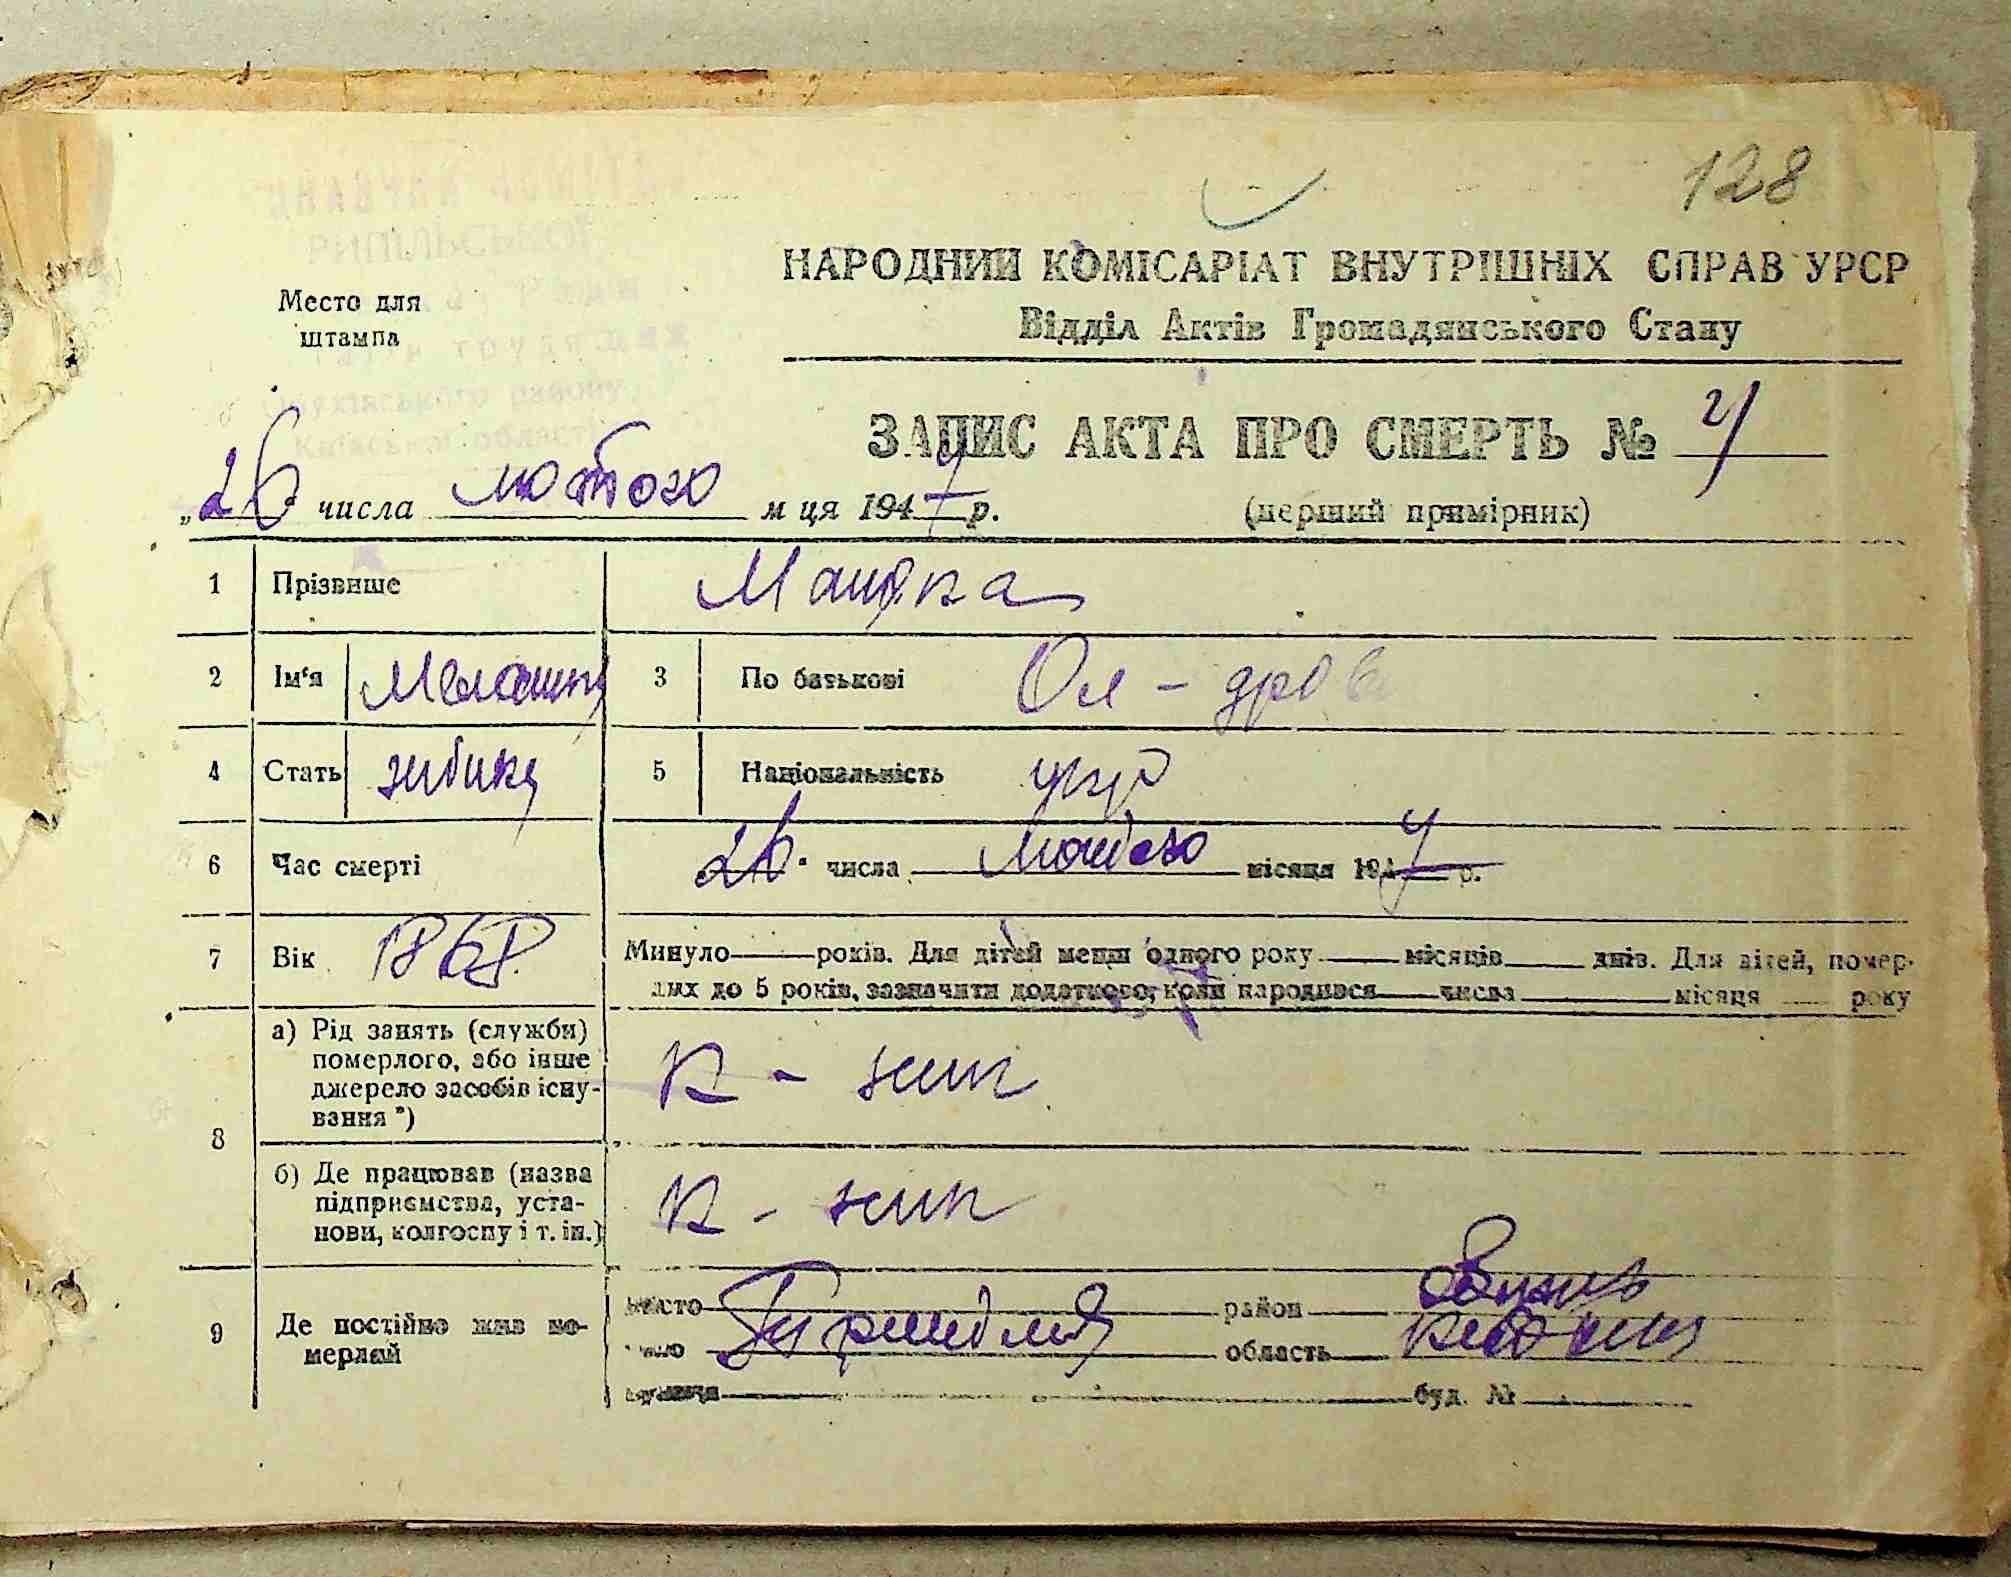 128
РИПІЛЬСЬКОЇ
трудящих
Обухівського району,
Київської області
Место для
штампа
НАРОДНИЙ КОМІСАРІАТ ВНУТРІШНІХ СПРАВ УРСР
Відділ Актів Громадянського Стану
ЗАПИС АКТА ПРО СМЕРТЬ №
(перший примірник)
„26 числа лютого м ця 1947 р.
1 Прізвище
2 Ім‘я 3 По батькові Ол - дров
4 Стать 5 Національність укр
6 Час смерті 26. числа лютого місяця 1947 р.
7 Вік 1868. Минуло років. Для дітей менш одного року місяців днів. Для дітей, помер-
лих до 5 років, зазначити додатково, коли народився числа місяця року
8 а) Рід занять (служби)
померлого, або інше
джерело засобів існу-
вання *)
к - ник
б) Де працював (назва
підприємства, уста-
нови, колгоспу і т. ін.)
к - ник
9 Де постійно жив по-
мерлий
місто район
село область
вулиця буд. №